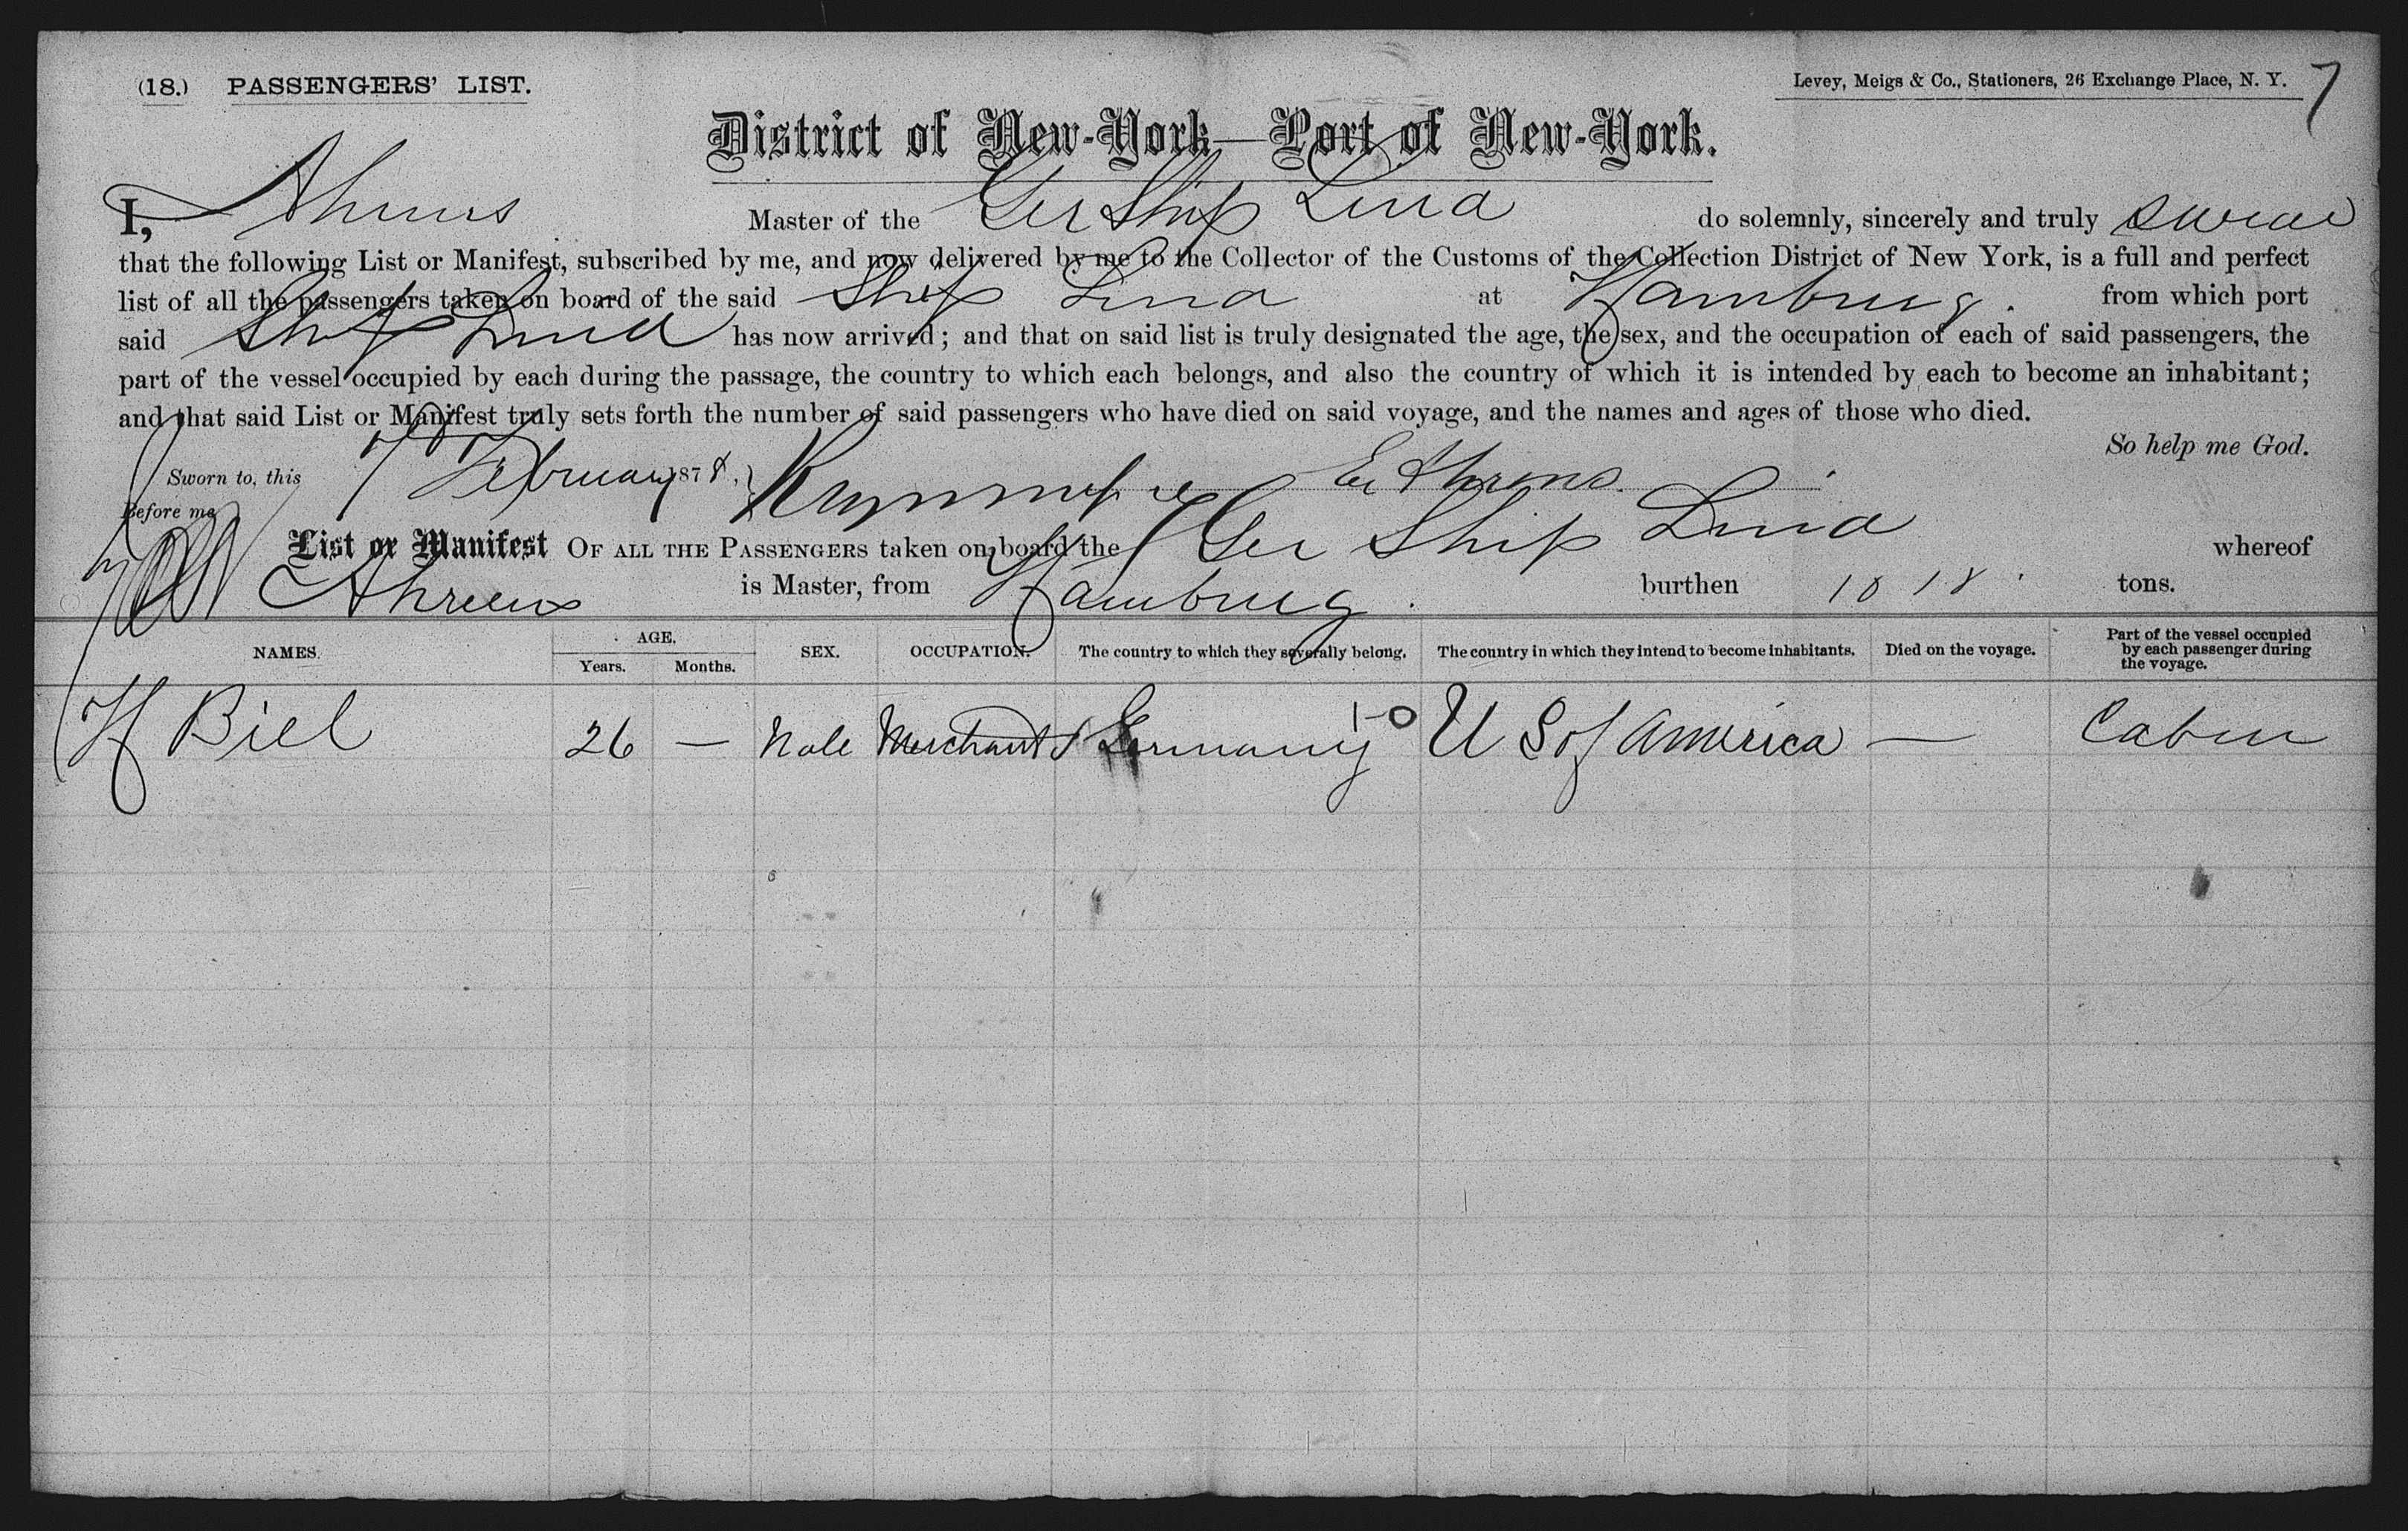 (18.) PASSENGERS' LIST.
Levey, Meigs & Co., Stationers, 26 Exchange Place, N. Y. 7
District of New-York—Port of New-York.
I, Ahrens Master of the Ger Ship Lina do solemnly, sincerely and truly swear
that the following List or Manifest, subscribed by me, and now delivered by me to the Collector of the Customs of the Collection District of New York, is a full and perfect
list of all the passengers taken on board of the said Ship Lina at Hamburg. from which port
said Ship Lina has now arrived; and that on said list is truly designated the age, the sex, and the occupation of each of said passengers, the
part of the vessel occupied by each during the passage, the country to which each belongs, and also the country of which it is intended by each to become an inhabitant;
and that said List or Manifest truly sets forth the number of said passengers who have died on said voyage, and the names and ages of those who died.
So help me God.
Sworn to, this 7 February 1878, E Ahrens.
Before me
List or Manifest OF ALL THE PASSENGERS taken on board the Ger Ship Lina whereof
Ahrens is Master, from Hamburg. burthen 1018 tons.
NAMES. AGE. Years. Months. SEX. OCCUPATION. The country to which they severally belong. The country in which they intend to become inhabitants. Died on the voyage. Part of the vessel occupied by each passenger during the voyage.
H Biel 26 — Male Merchant Germany 1-0 U S of America — Cabin